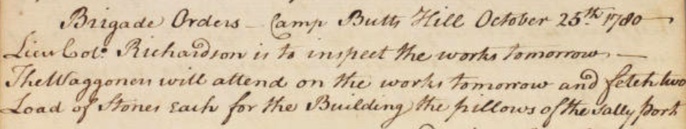 Brigade Orders - Camp Butts Hill October 25th 1780 —
Lieu Colo. Richardson is to inspect the works tomorrow —
The Waggoners will attend on the works tomorrow and fetch two
Load of Stones Each for the Building the pillows of the Sally Port